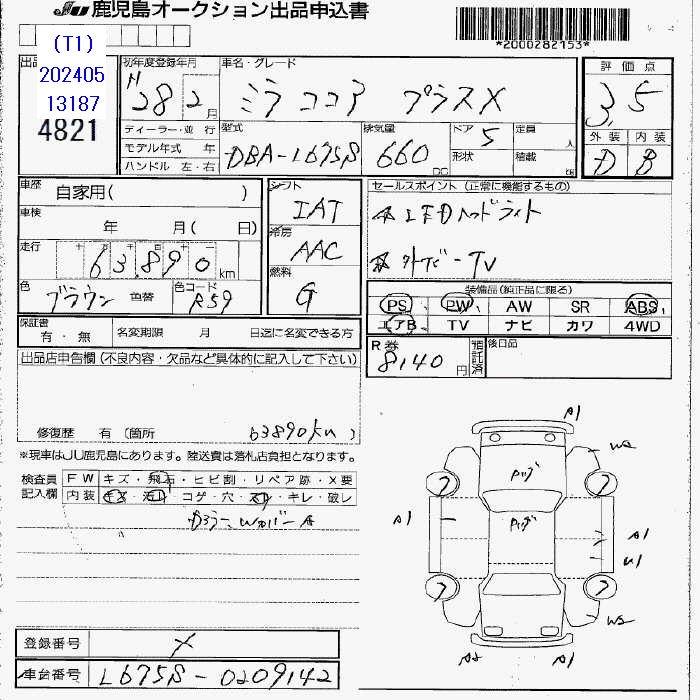 JU 鹿児島オークション出品申込書
*2000282153*
出品
(T1)
202405
13187
4821
初年度登録年月
H28 2月
車名・グレード
ミラココア プラスX
評価点
3.5
外装 内装
D B
ディーラー・並行
モデル年式 年
ハンドル 左・右
型式
DBA-L675S
排気量
660 cc
ドア
5
形状
定員 人
積載 kg
車歴
自家用( )
車検
年 月( 日)
走行
十万千百十一
63,890 km
色
ブラウン
色替
色コード
R59
シフト
IAT
冷房
AAC
燃料
G
セールスポイント (正常に機能するもの)
LEDヘッドライト
ナビ-TV
装備品 (純正品に限る)
PS、 PW、 AW SR ABS、
エアB、 TV ナビ カワ 4WD
保証書
有・無
名変期限 月 日迄に名変できる方
R券
8,140 円
預託済
後日品
出品店申告欄 (不良内容・欠品など具体的に記入して下さい)
修復歴 有 (箇所 63890km )
※現車はJU鹿児島にあります。陸送費は落札店負担となります。
検査員
記入欄
FW キズ・飛石・ヒビ割・リペア跡・X要
内装 キズ・汚レ・コゲ・穴・スレ・キレ・破レ
A1
W2
7
7
A1
A1
U1
7
7
W2
A2
A1
登録番号 X
車台番号 L675S-0209142